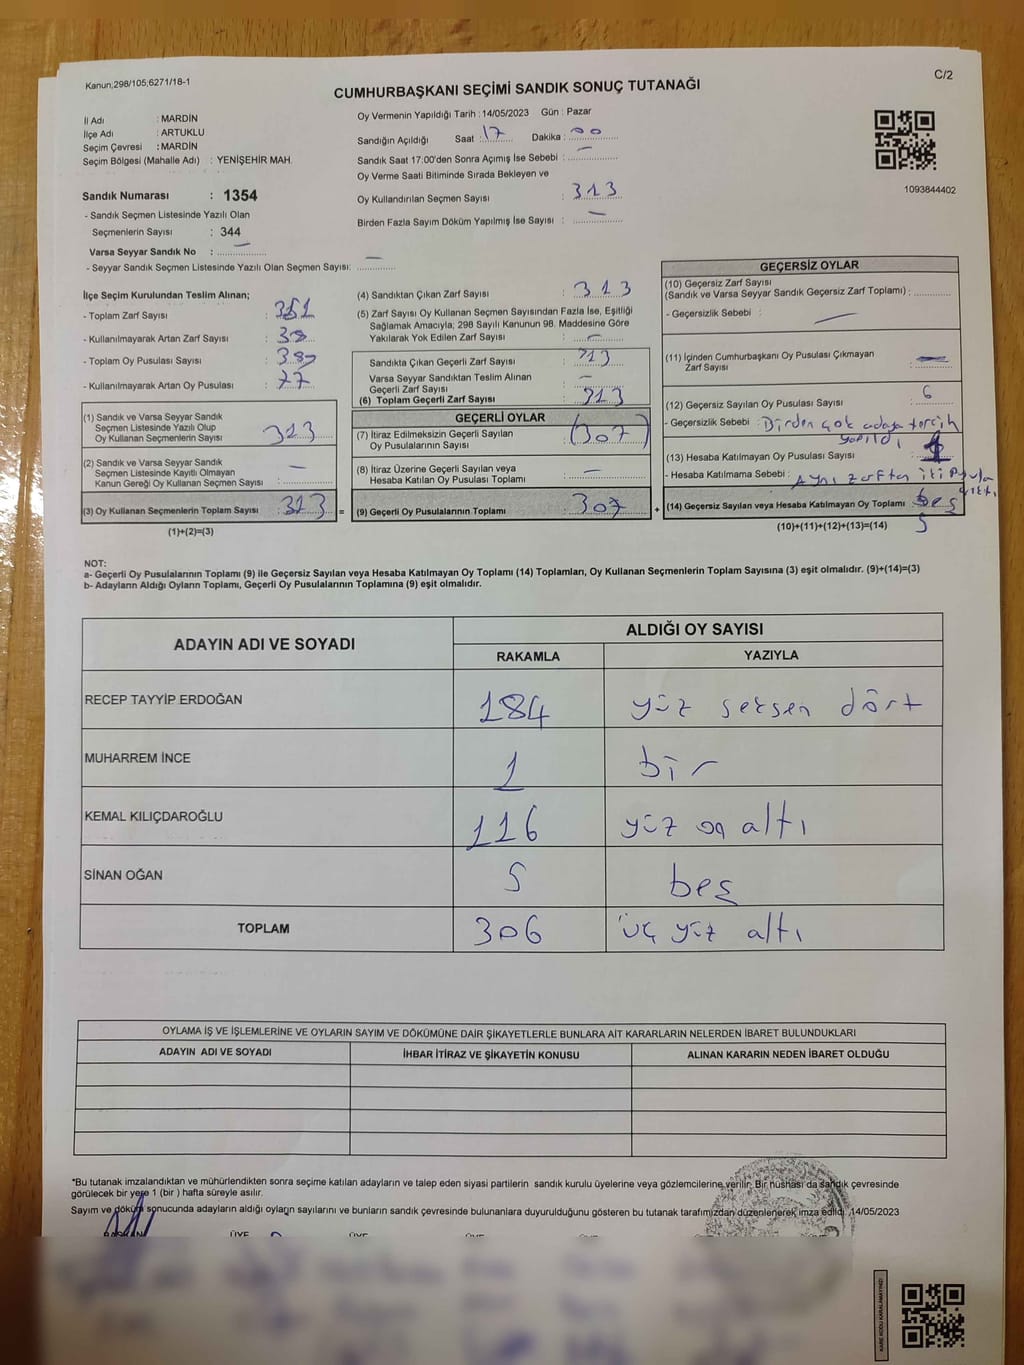 Kanun;298/105;6271/18-1
C/2
CUMHURBAŞKANI SEÇİMİ SANDIK SONUÇ TUTANAĞI
İl Adı : MARDİN
İlçe Adı : ARTUKLU
Seçim Çevresi : MARDİN
Seçim Bölgesi (Mahalle Adı) : YENİŞEHİR MAH.
Sandık Numarası : 1354
- Sandık Seçmen Listesinde Yazılı Olan
Seçmenlerin Sayısı : 344
Varsa Seyyar Sandık No : —
- Seyyar Sandık Seçmen Listesinde Yazılı Olan Seçmen Sayısı: —
Oy Vermenin Yapıldığı Tarih : 14/05/2023 Gün : Pazar
Sandığın Açıldığı Saat : 17 Dakika : 00
Sandık Saat 17:00'den Sonra Açımış İse Sebebi : —
Oy Verme Saati Bitiminde Sırada Bekleyen ve
Oy Kullandırılan Seçmen Sayısı : 313
Birden Fazla Sayım Döküm Yapılmış İse Sayısı : —
1093844402
İlçe Seçim Kurulundan Teslim Alınan;
- Toplam Zarf Sayısı : 351
- Kullanılmayarak Artan Zarf Sayısı : 38
- Toplam Oy Pusulası Sayısı :
- Kullanılmayarak Artan Oy Pusulası : 77
(1) Sandık ve Varsa Seyyar Sandık
Seçmen Listesinde Yazılı Olup
Oy Kullanan Seçmenlerin Sayısı : 313
(2) Sandık ve Varsa Seyyar Sandık
Seçmen Listesinde Kayıtlı Olmayan
Kanun Gereği Oy Kullanan Seçmen Sayısı : —
(3) Oy Kullanan Seçmenlerin Toplam Sayısı : 313 =
(1)+(2)=(3)
(4) Sandıktan Çıkan Zarf Sayısı : 313
(5) Zarf Sayısı Oy Kullanan Seçmen Sayısından Fazla İse, Eşitliği
Sağlamak Amacıyla; 298 Sayılı Kanunun 98. Maddesine Göre
Yakılarak Yok Edilen Zarf Sayısı : —
Sandıkta Çıkan Geçerli Zarf Sayısı : 313
Varsa Seyyar Sandıktan Teslim Alınan
Geçerli Zarf Sayısı : —
(6) Toplam Geçerli Zarf Sayısı : 313
GEÇERLİ OYLAR
(7) İtiraz Edilmeksizin Geçerli Sayılan
Oy Pusulalarının Sayısı : (307)
(8) İtiraz Üzerine Geçerli Sayılan veya
Hesaba Katılan Oy Pusulası Toplamı : —
(9) Geçerli Oy Pusulalarının Toplamı : 307 +
GEÇERSİZ OYLAR
(10) Geçersiz Zarf Sayısı
(Sandık ve Varsa Seyyar Sandık Geçersiz Zarf Toplamı) :
- Geçersizlik Sebebi : —
(11) İçinden Cumhurbaşkanı Oy Pusulası Çıkmayan
Zarf Sayısı : —
(12) Geçersiz Sayılan Oy Pusulası Sayısı : 6
- Geçersizlik Sebebi : Birden çok adaya tercih
yapıldı
(13) Hesaba Katılmayan Oy Pusulası Sayısı :
- Hesaba Katılmama Sebebi : Aynı zarftan iki pusula
çıktı
(14) Geçersiz Sayılan veya Hesaba Katılmayan Oy Toplamı : beş
5
(10)+(11)+(12)+(13)=(14)
NOT:
a- Geçerli Oy Pusulalarının Toplamı (9) ile Geçersiz Sayılan veya Hesaba Katılmayan Oy Toplamı (14) Toplamları, Oy Kullanan Seçmenlerin Toplam Sayısına (3) eşit olmalıdır. (9)+(14)=(3)
b- Adayların Aldığı Oyların Toplamı, Geçerli Oy Pusulalarının Toplamına (9) eşit olmalıdır.
ADAYIN ADI VE SOYADI
ALDIĞI OY SAYISI
RAKAMLA YAZIYLA
RECEP TAYYİP ERDOĞAN 184 yüz seksen dört
MUHARREM İNCE 1 bir
KEMAL KILIÇDAROĞLU 116 yüz on altı
SİNAN OĞAN 5 beş
TOPLAM 306 üç yüz altı
OYLAMA İŞ VE İŞLEMLERİNE VE OYLARIN SAYIM VE DÖKÜMÜNE DAİR ŞİKAYETLERLE BUNLARA AİT KARARLARIN NELERDEN İBARET BULUNDUKLARI
ADAYIN ADI VE SOYADI İHBAR İTİRAZ VE ŞİKAYETİN KONUSU ALINAN KARARIN NEDEN İBARET OLDUĞU
*Bu tutanak imzalandıktan ve mühürlendikten sonra seçime katılan adayların ve talep eden siyasi partilerin sandık kurulu üyelerine veya gözlemcilerine verilir. Bir nüshası da sandık çevresinde
görülecek bir yere 1 (bir ) hafta süreyle asılır.
Sayım ve döküm sonucunda adayların aldığı oyların sayılarını ve bunların sandık çevresinde bulunanlara duyurulduğunu gösteren bu tutanak tarafımızdan düzenlenerek imza edildi. 14/05/2023
BAŞKAN ÜYE ÜYE ÜYE ÜYE
KARE KODU KARALAMAYINIZ!